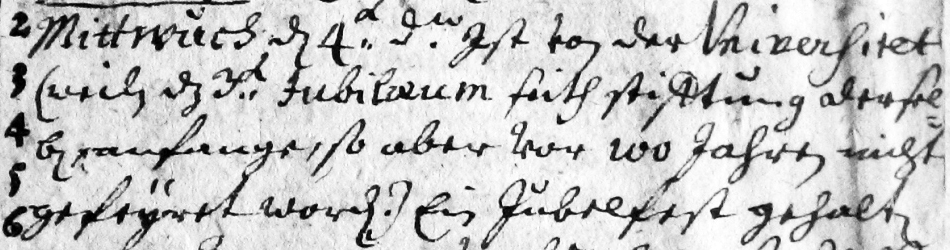 2 Mittwuch d 4. d. Ist von der Universitet
3 (weil dz 2. Jubilæum sith stifftung dersel=
4 b anfange, so aber vor 100 Jahren nicht
5
6 gefeÿret word.) Ein Jubelfest gehalt